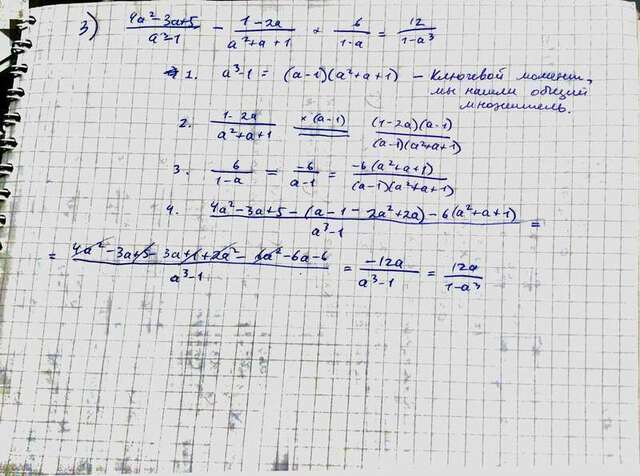 3) (4a²-3a+5)/(a³-1) - (1-2a)/(a²+a+1) + 6/(1-a) = 12/(1-a³)
1. a³-1 = (a-1)(a²+a+1) - Ключевой момент,
мы нашли общий
множитель.
2. (1-2a)/(a²+a+1) ×(a-1) ((1-2a)(a-1))/((a-1)(a²+a+1))
3. 6/(1-a) = -6/(a-1) = (-6(a²+a+1))/((a-1)(a²+a+1))
4. (4a²-3a+5-(a-1-2a²+2a)-6(a²+a+1))/(a³-1) =
= (4a²-3a+5-3a+1+2a²-6a²-6a-6)/(a³-1) = -12a/(a³-1) = 12a/(1-a³)